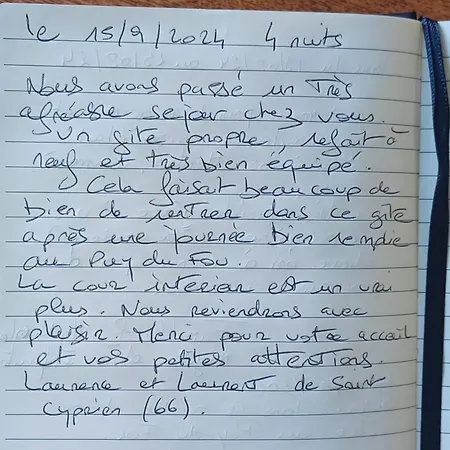 le 15/9/2024 4 nuits
Nous avons passé un Très
agréable sejour chez vous.
Un gite propre, refait à
neuf et très bien équipé.
Cela faisait beaucoup de
bien de rentrer dans ce gîte
après une journée bien remplie
au Puy du Fou.
La cour interieur est un vrai
plus. Nous reviendrons avec
plaisir. Merci pour votre accueil
et vos petites attentions.
Laurence et Laurent de Saint
Cyprien (66).